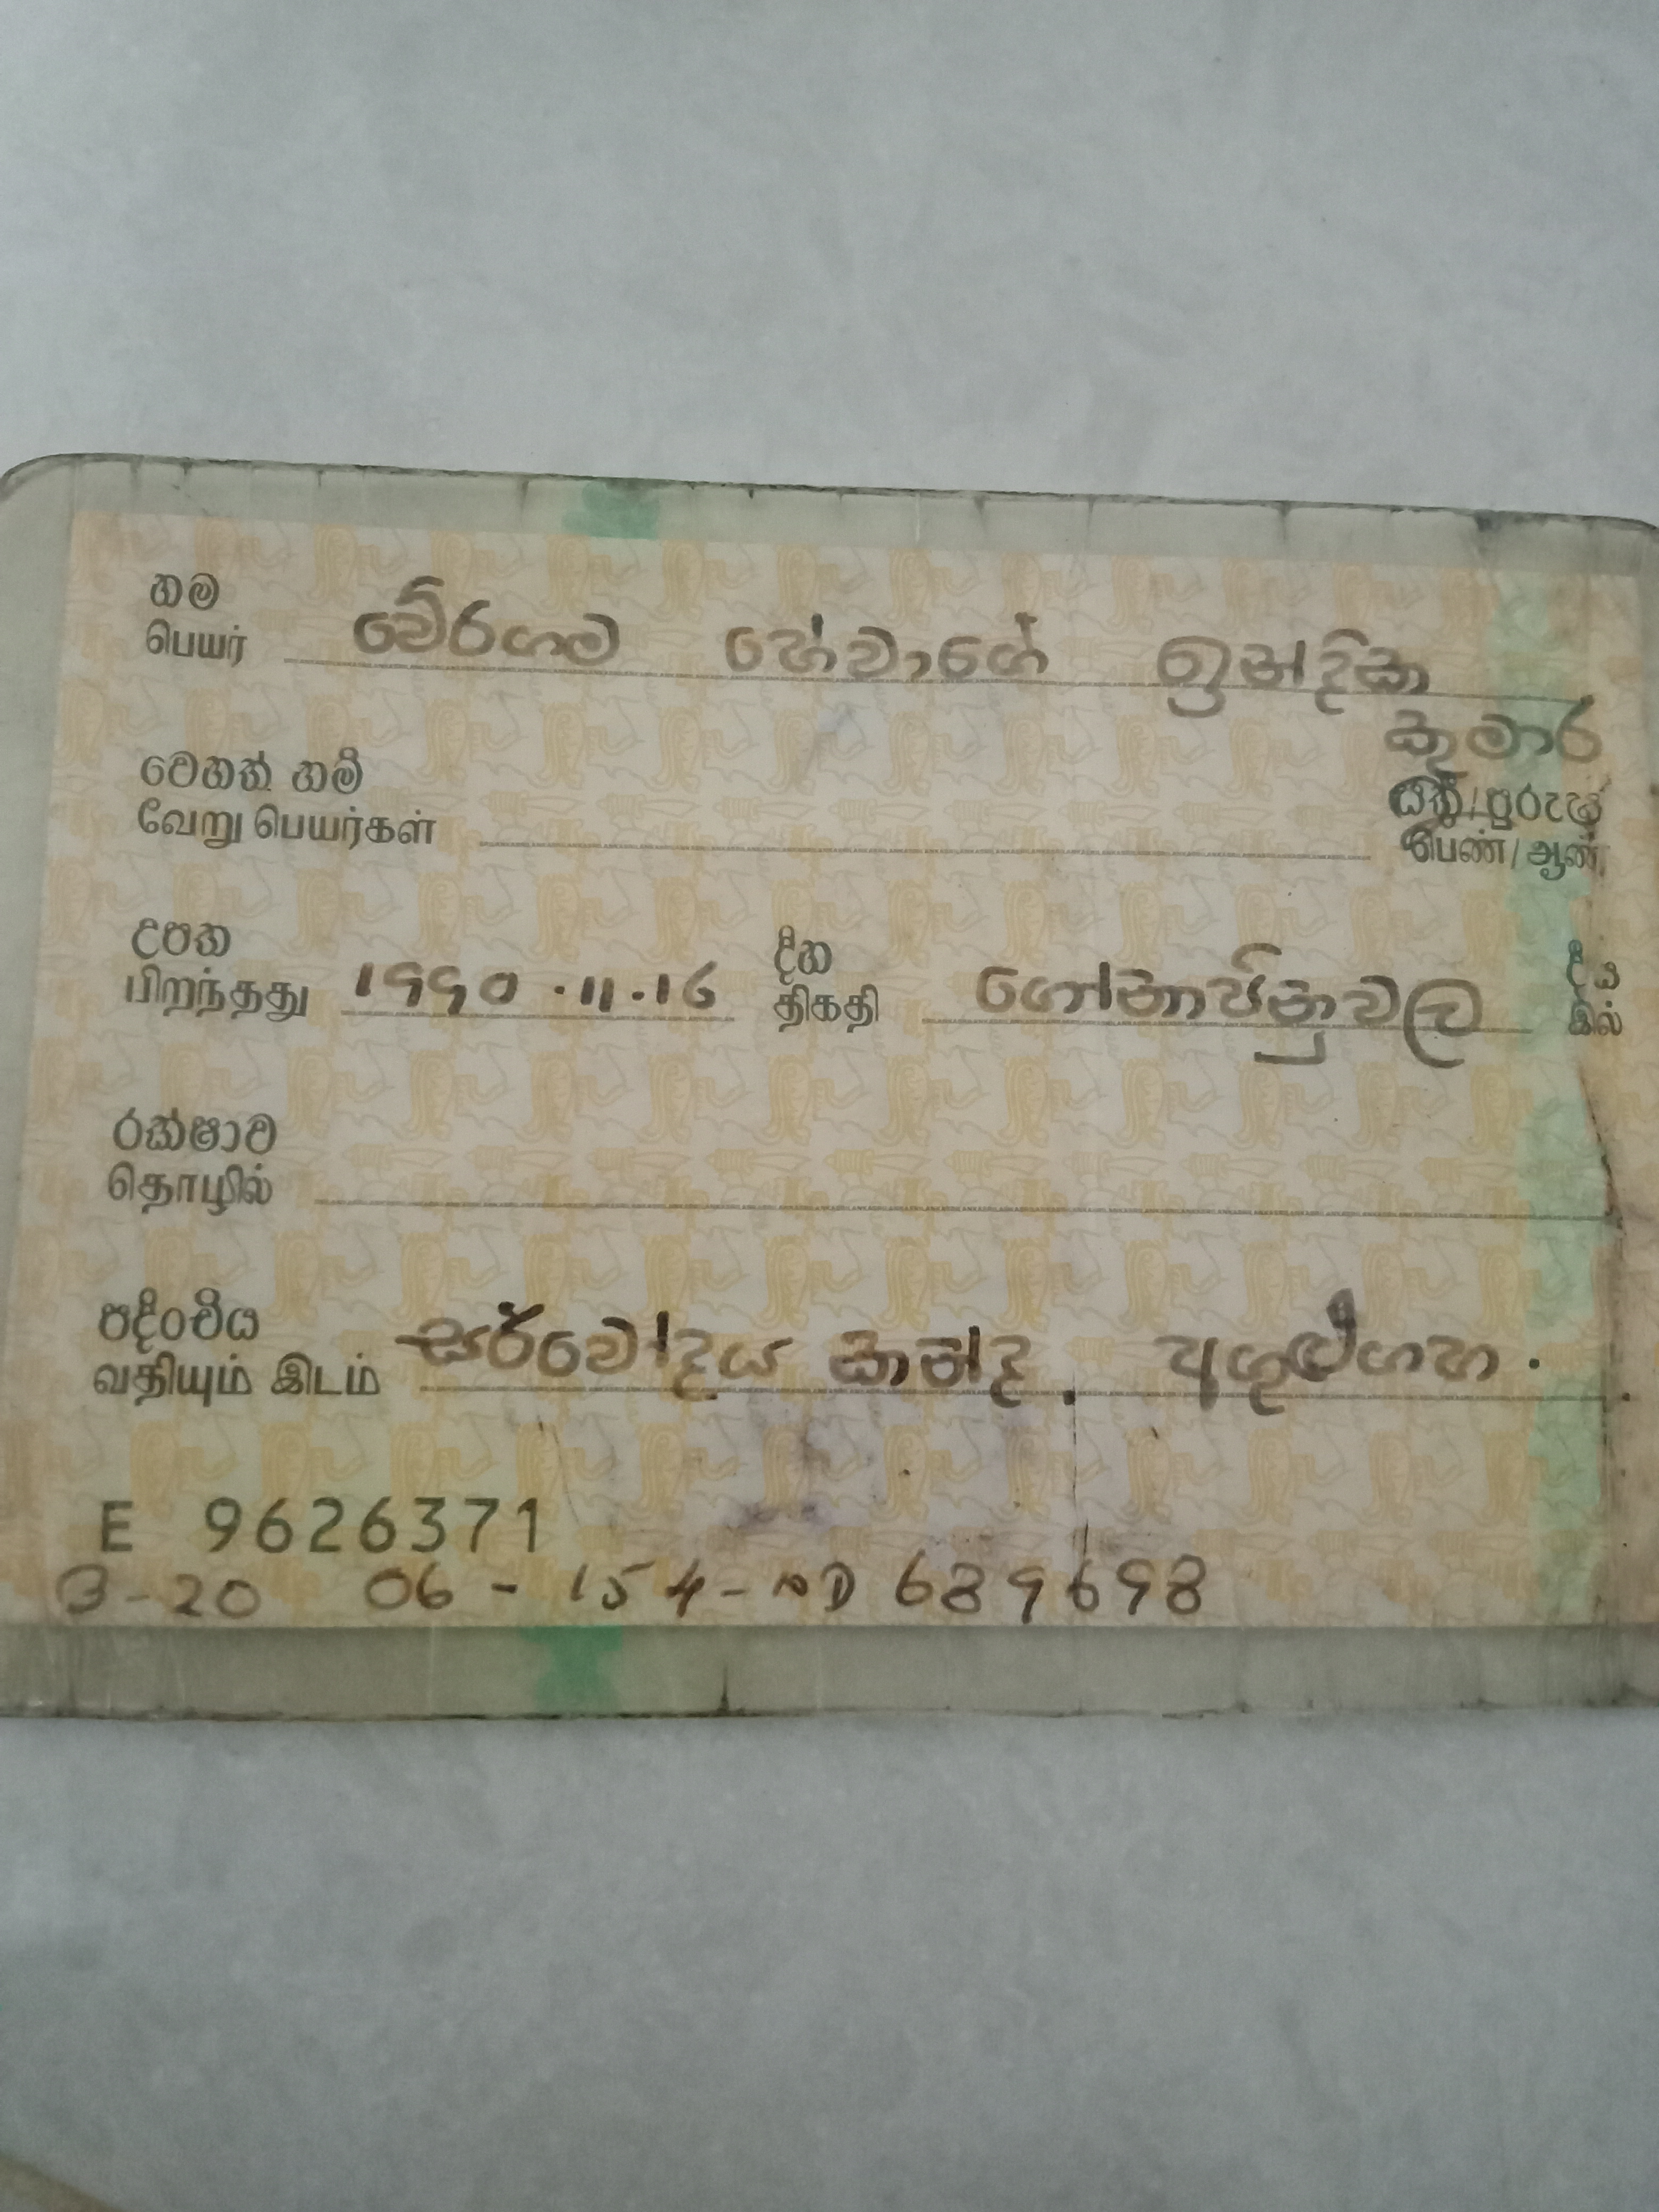 නම
பெயர் වේරගම හේවාගේ ඉන්දික
කුමාර
වෙනත් නම්
வேறு பெயர்கள்
ස්ත්‍රී/පුරුෂ
பெண்/ஆண்
උපත දින දීය
பிறந்தது 1990.11.16 திகதி ගෝනාපිනුවල இல்
රක්ෂාව
தொழில்
පදිංචිය
வதியும் இடம் සර්වෝදය කන්ද. අගුළුගහ.
E 9626371
B-20 06 - 154 - ND 689698